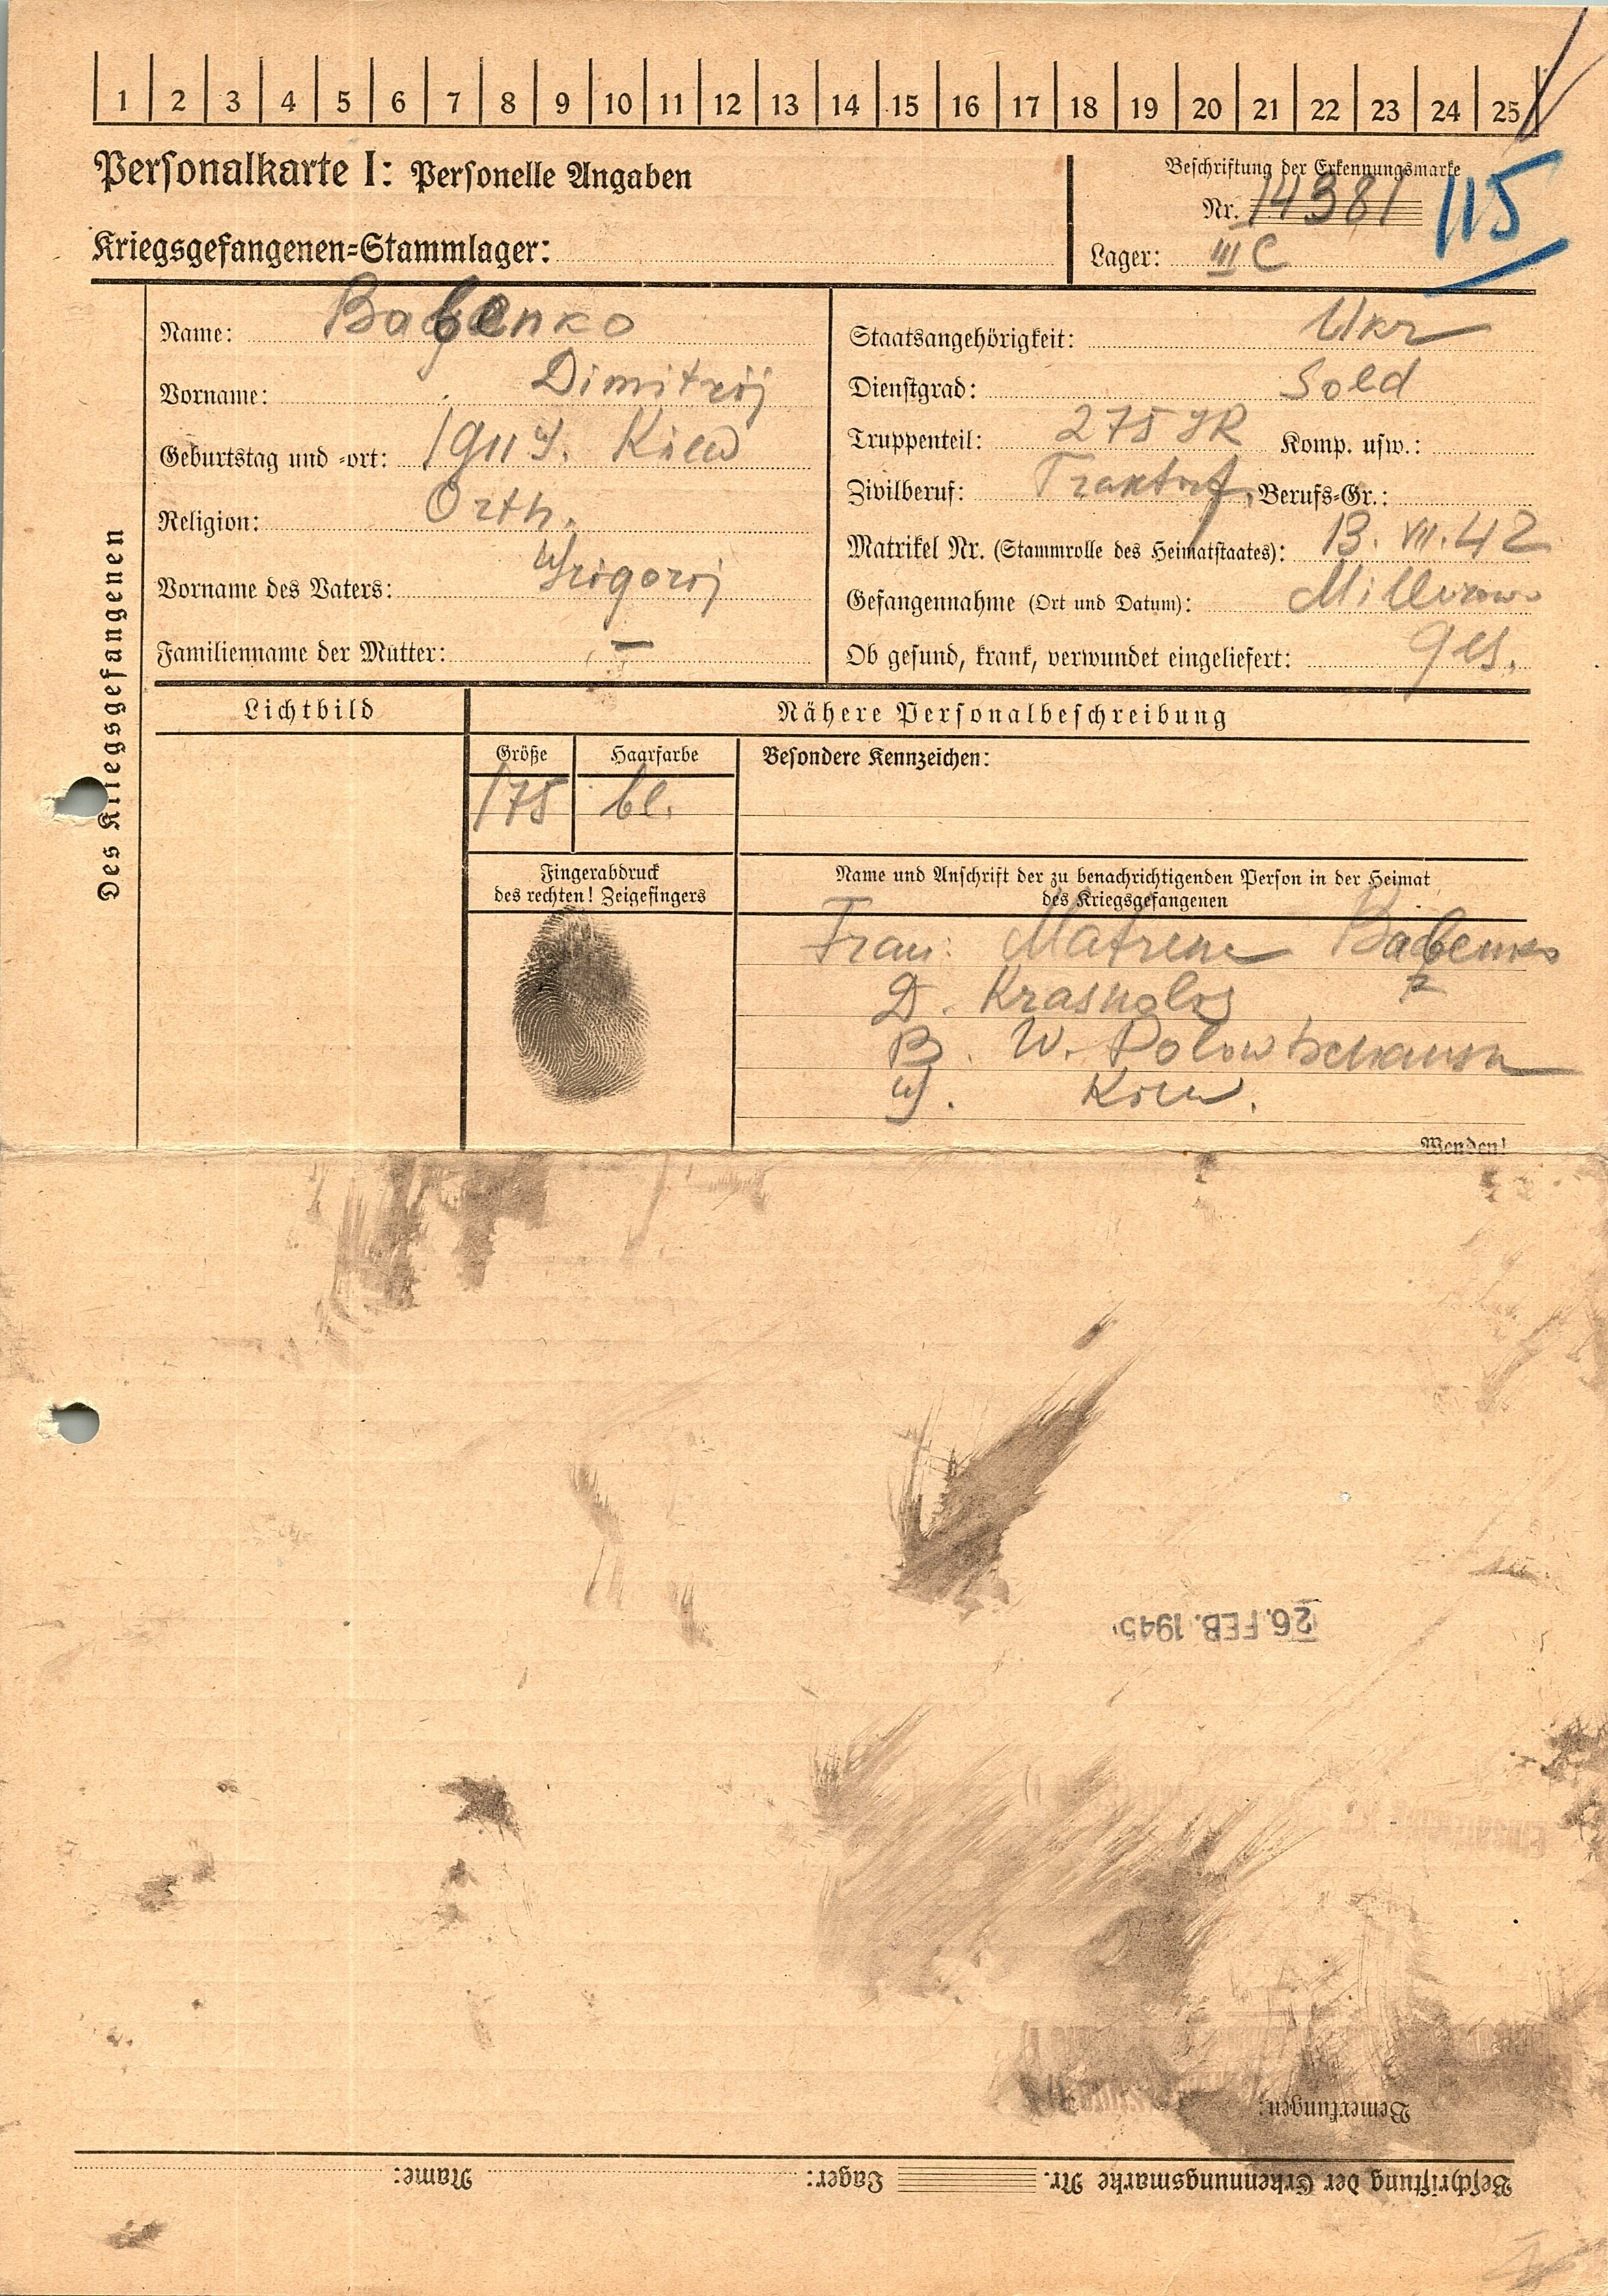 1 2 3 4 5 6 7 8 9 10 11 12 13 14 15 16 17 18 19 20 21 22 23 24 25
Personalkarte I: Personelle Angaben
Beschriftung der Erkennungsmarke
Nr. 14381 115
Kriegsgefangenen=Stammlager:
Lager: III C
Des Kriegsgefangenen
Name: Babenko
Vorname: Dimitrij
Geburtstag und -ort: 1911 Kiew
Religion: Orth.
Vorname des Vaters: Grigorij
Familienname der Mutter: —
Staatsangehörigkeit: Ukr
Dienstgrad: Sold
Truppenteil: 275 IR Komp. usw.:
Zivilberuf: Berufs=Gr.:
Matrikel Nr. (Stammrolle des Heimatstaates): 13. VII. 42
Gefangennahme (Ort und Datum): Millerowo
Ob gesund, krank, verwundet eingeliefert: ges.
Lichtbild
Nähere Personalbeschreibung
Größe Haarfarbe Besondere Kennzeichen:
175 bl.
Fingerabdruck
des rechten! Zeigefingers
Name und Anschrift der zu benachrichtigenden Person in der Heimat
des Kriegsgefangenen
Frau: Matrene Babenko
D.
W.
G. Kiew.
Wenden!
26. FEB. 1945
Bemerkungen:
Beschriftung der Erkennungsmarke Nr. Lager: Name: